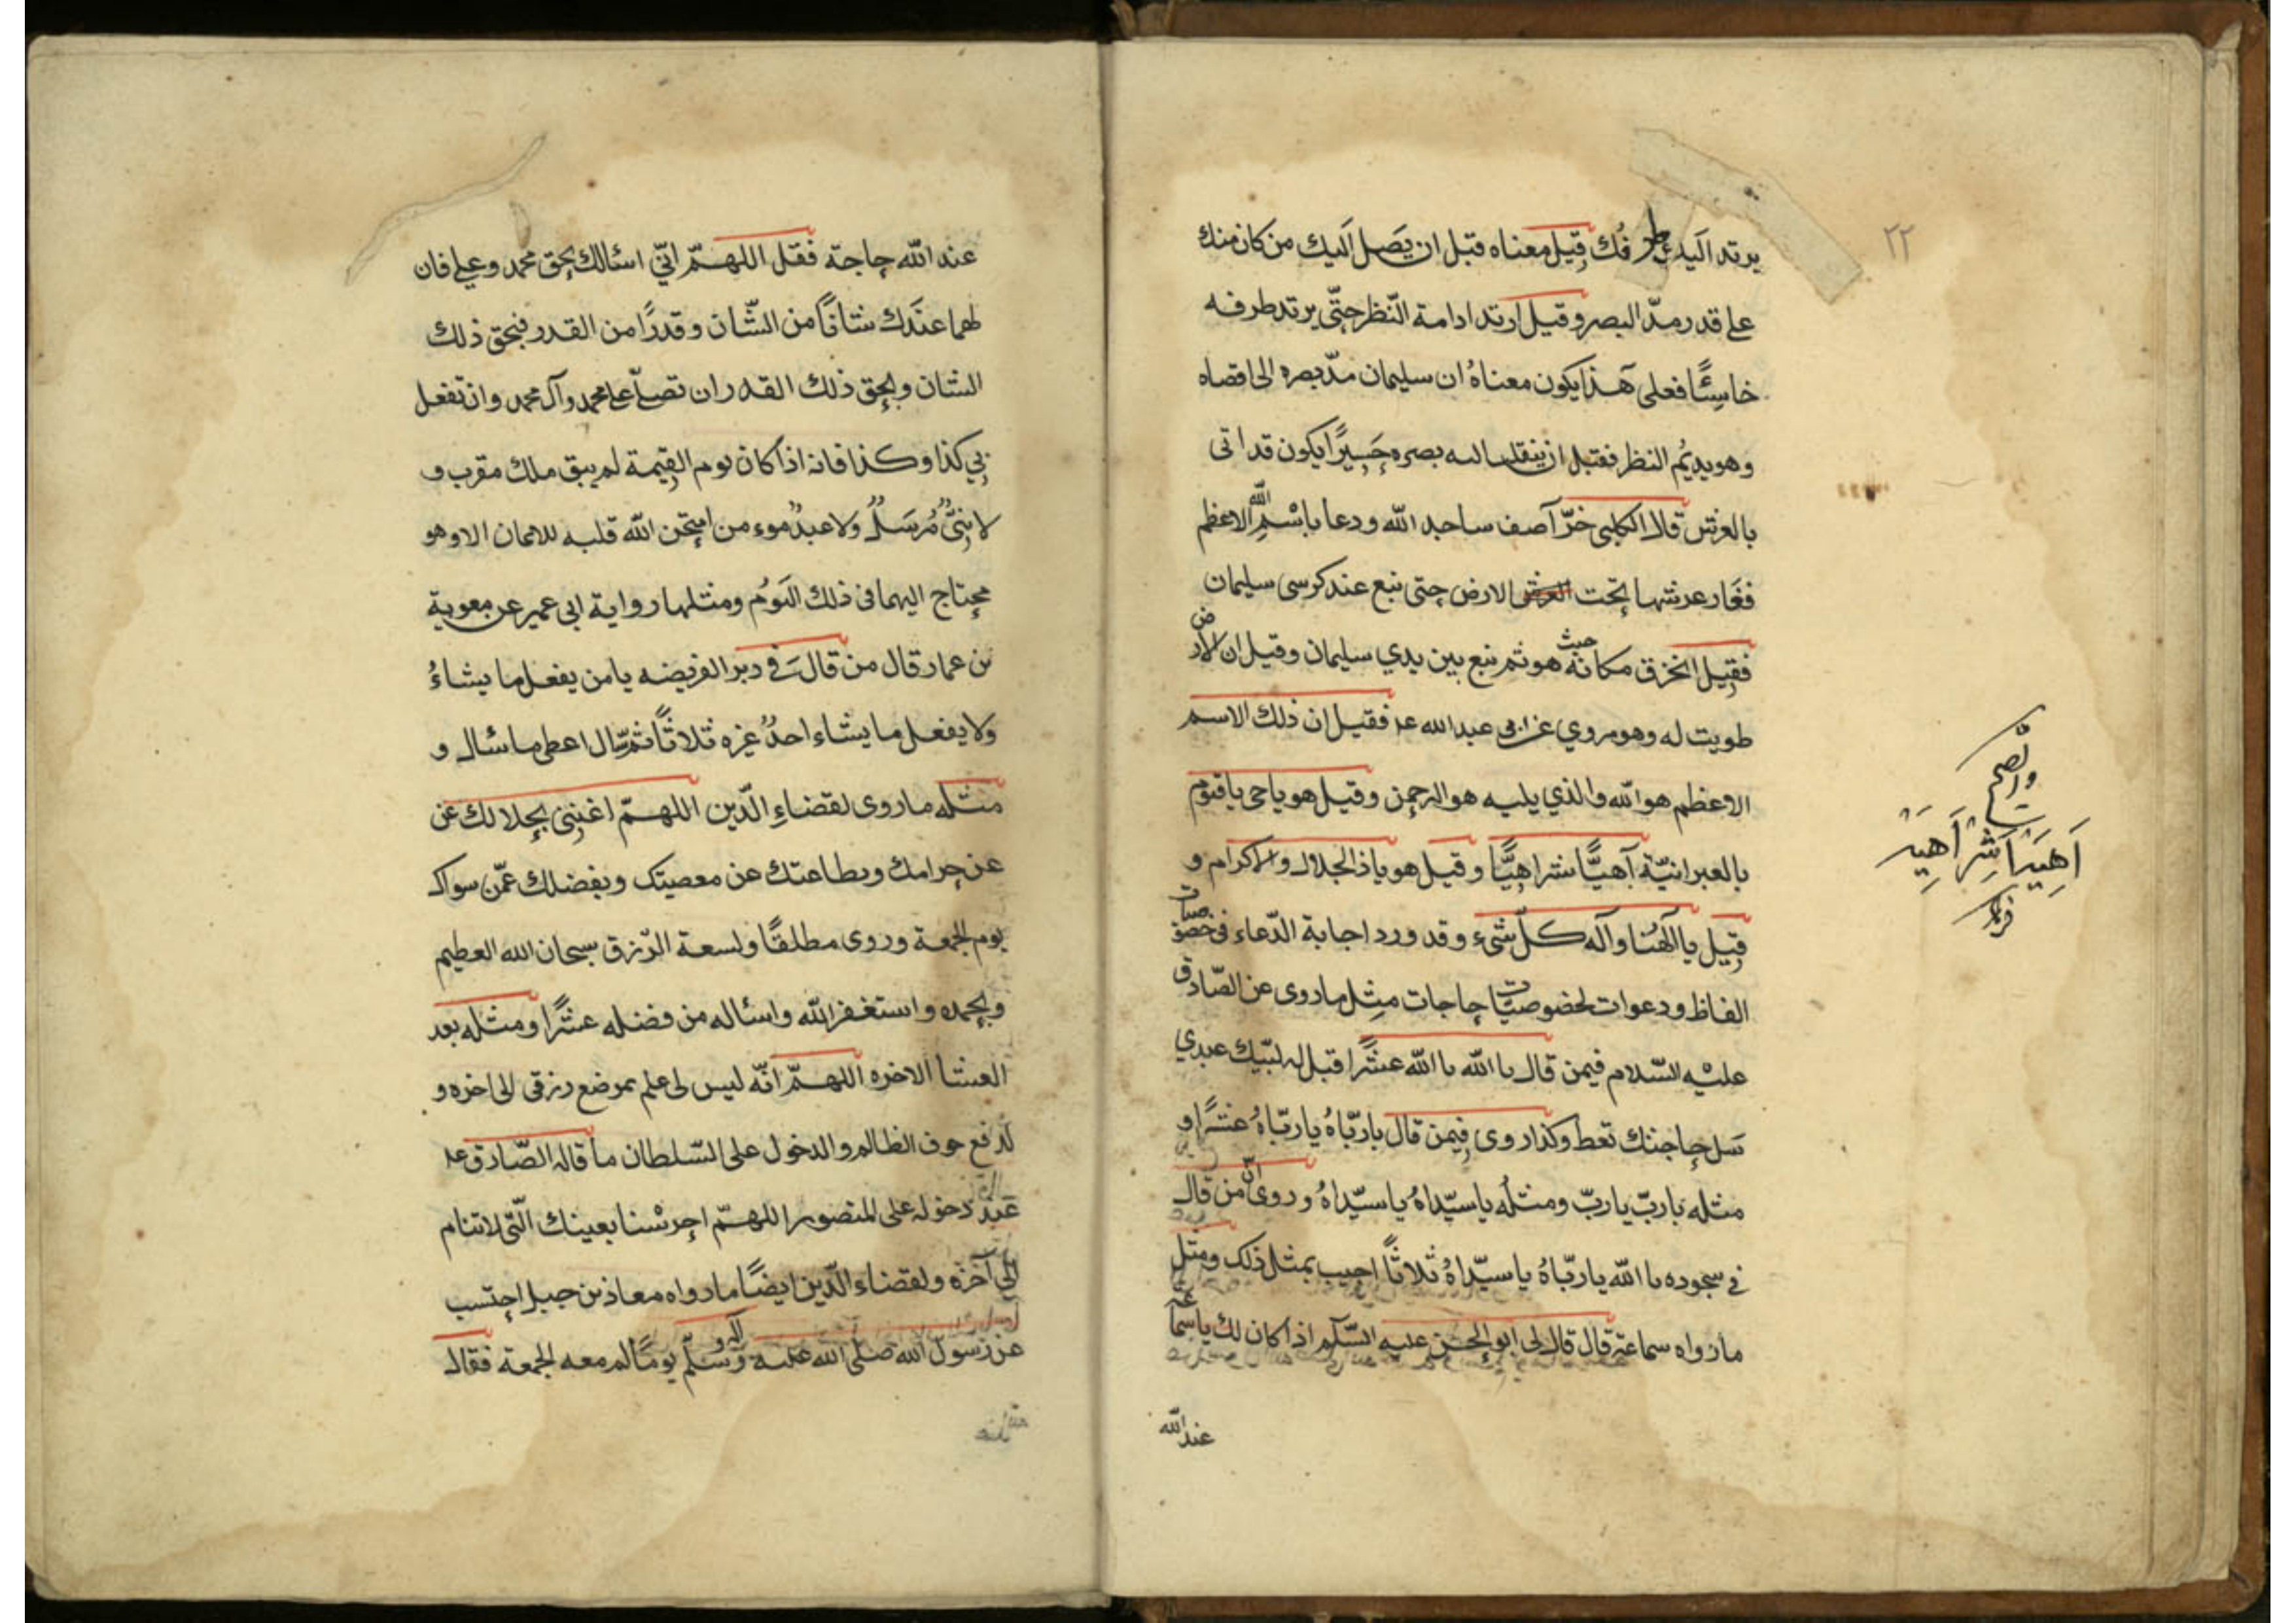 ٢٢
يرتد اليك طرفك قيل معناه قبل ان يصل اليك من كان منك
على قدر مدّ البصر وقيل ارتد ادامة النّظر حتّى يرتد طرفه
خاسِئًا فعلى هَذا يكون معناهُ ان سليمان مدّ بصره الى اقصاه
وهو يديُم النظر فقبل ان ينقلب اليه بصره حَسِيرًا يكون قد اتى
بالعرش قال الكلبى خرّ آصف ساجد الله ودعا باسْمِ الله الاعظم
فغار عرشها تحت الارض حتى نبع عند كرسى سليمان
فقيل انخرق مكانه حيث هو ثم نبع بين يدي سليمان وقيل ان الارض
طويت له وهو مروي عن ابى عبد الله ع‍ فقيل ان ذلك الاسم
الاعظم هو الله والذي يليه هو الرحمن وقيل هو ياحى ياقيّوم
بالعبرانيّة آهيًّا شراهيًّا وقيل هو ياذا الجلال والاكرام و
قيل يا الَهنا وآله كلّ شىء وقد ورد اجابة الدّعاء فى خصوصيات
الفاظ ودعوات لخصوصيّات حاجات مثِل ماروى عن الصّادق
عليْه السّلام فيمن قال يا الله يا الله عشًرا قبل له لبّيك عبدي
سَل حاجتك تعط وكذا روى فيمن قال ياربّاهُ ياربّاهُ عشرًا و
مثله ياربّ ياربّ ومثلُه ياسيّداهُ ياسيّداهُ وروى انّ من قال
فى سجوده يا الله ياربّاهُ ياسيّداهُ ثلاثاً اجيب بمثل ذلك ومثل
مارواه سماعة قال قال لى ابو الحسن عليه السّلم اذا كان لك ياسماعة
عند الله
والصّحيح
اَهِيَر اَشِر اَهِيَر
عند الله حاجة فقل اللهمّ انّي اسئالك بحق محمد وعلى فان
لهما عنَدك شاناً من الشّان وقدرًا من القدر فبحق ذلك
الشان وبحق ذلك القدر ان تصلّى على محمد وآل محمد وان تفعل
بي كذا وكذا فانه اذا كان يوم القيمة لم يبق ملك مقرب و
لا نبىٌّ مُرسَلُ ولا عبدُ موءمن امتحن الله قلبه للايمان الا وهو
محتاج اليهما فى ذلك اليَوُم ومثلها رواية ابى عمير عن معوية
بن عمار قال من قالَ فى دبر الفريضه يامن يفعل ما يشاءُ
ولا يفعل ما يشاء احدُ غيره ثلاثاً ثمّ سال اعطى ما سئال و
مثله ماروى لقضاءِ الدّين اللهمّ اغننِى بحلالك عن
عن حرامك وبطاعتك عن معصيتك وبفضلك عمّن سواك
يوم الجمعة وروى مطلقًا ولسعة الرّزق سبحان الله العظيم
وبحمده واستغفر الله واسئاله من فضله عشًرا ومثله بعد
العشا الاخره اللهمّ انّه ليس لى علم بموضع رزقى الى اخره و
لدفع خوف الظالم والدخول على السّلطان ما قاله الصّادق ع‍
عند دخوله على المنصور اللهمّ احرسْنا بعينك الّتى لاتنام
الى آخرَه ولقضاء الدّين ايضًا مارواه معاذ بن جبل احتسب
عن رسول الله صلّى الله عليه وآله وسلّم يومًا لم معه الجمعة فقال